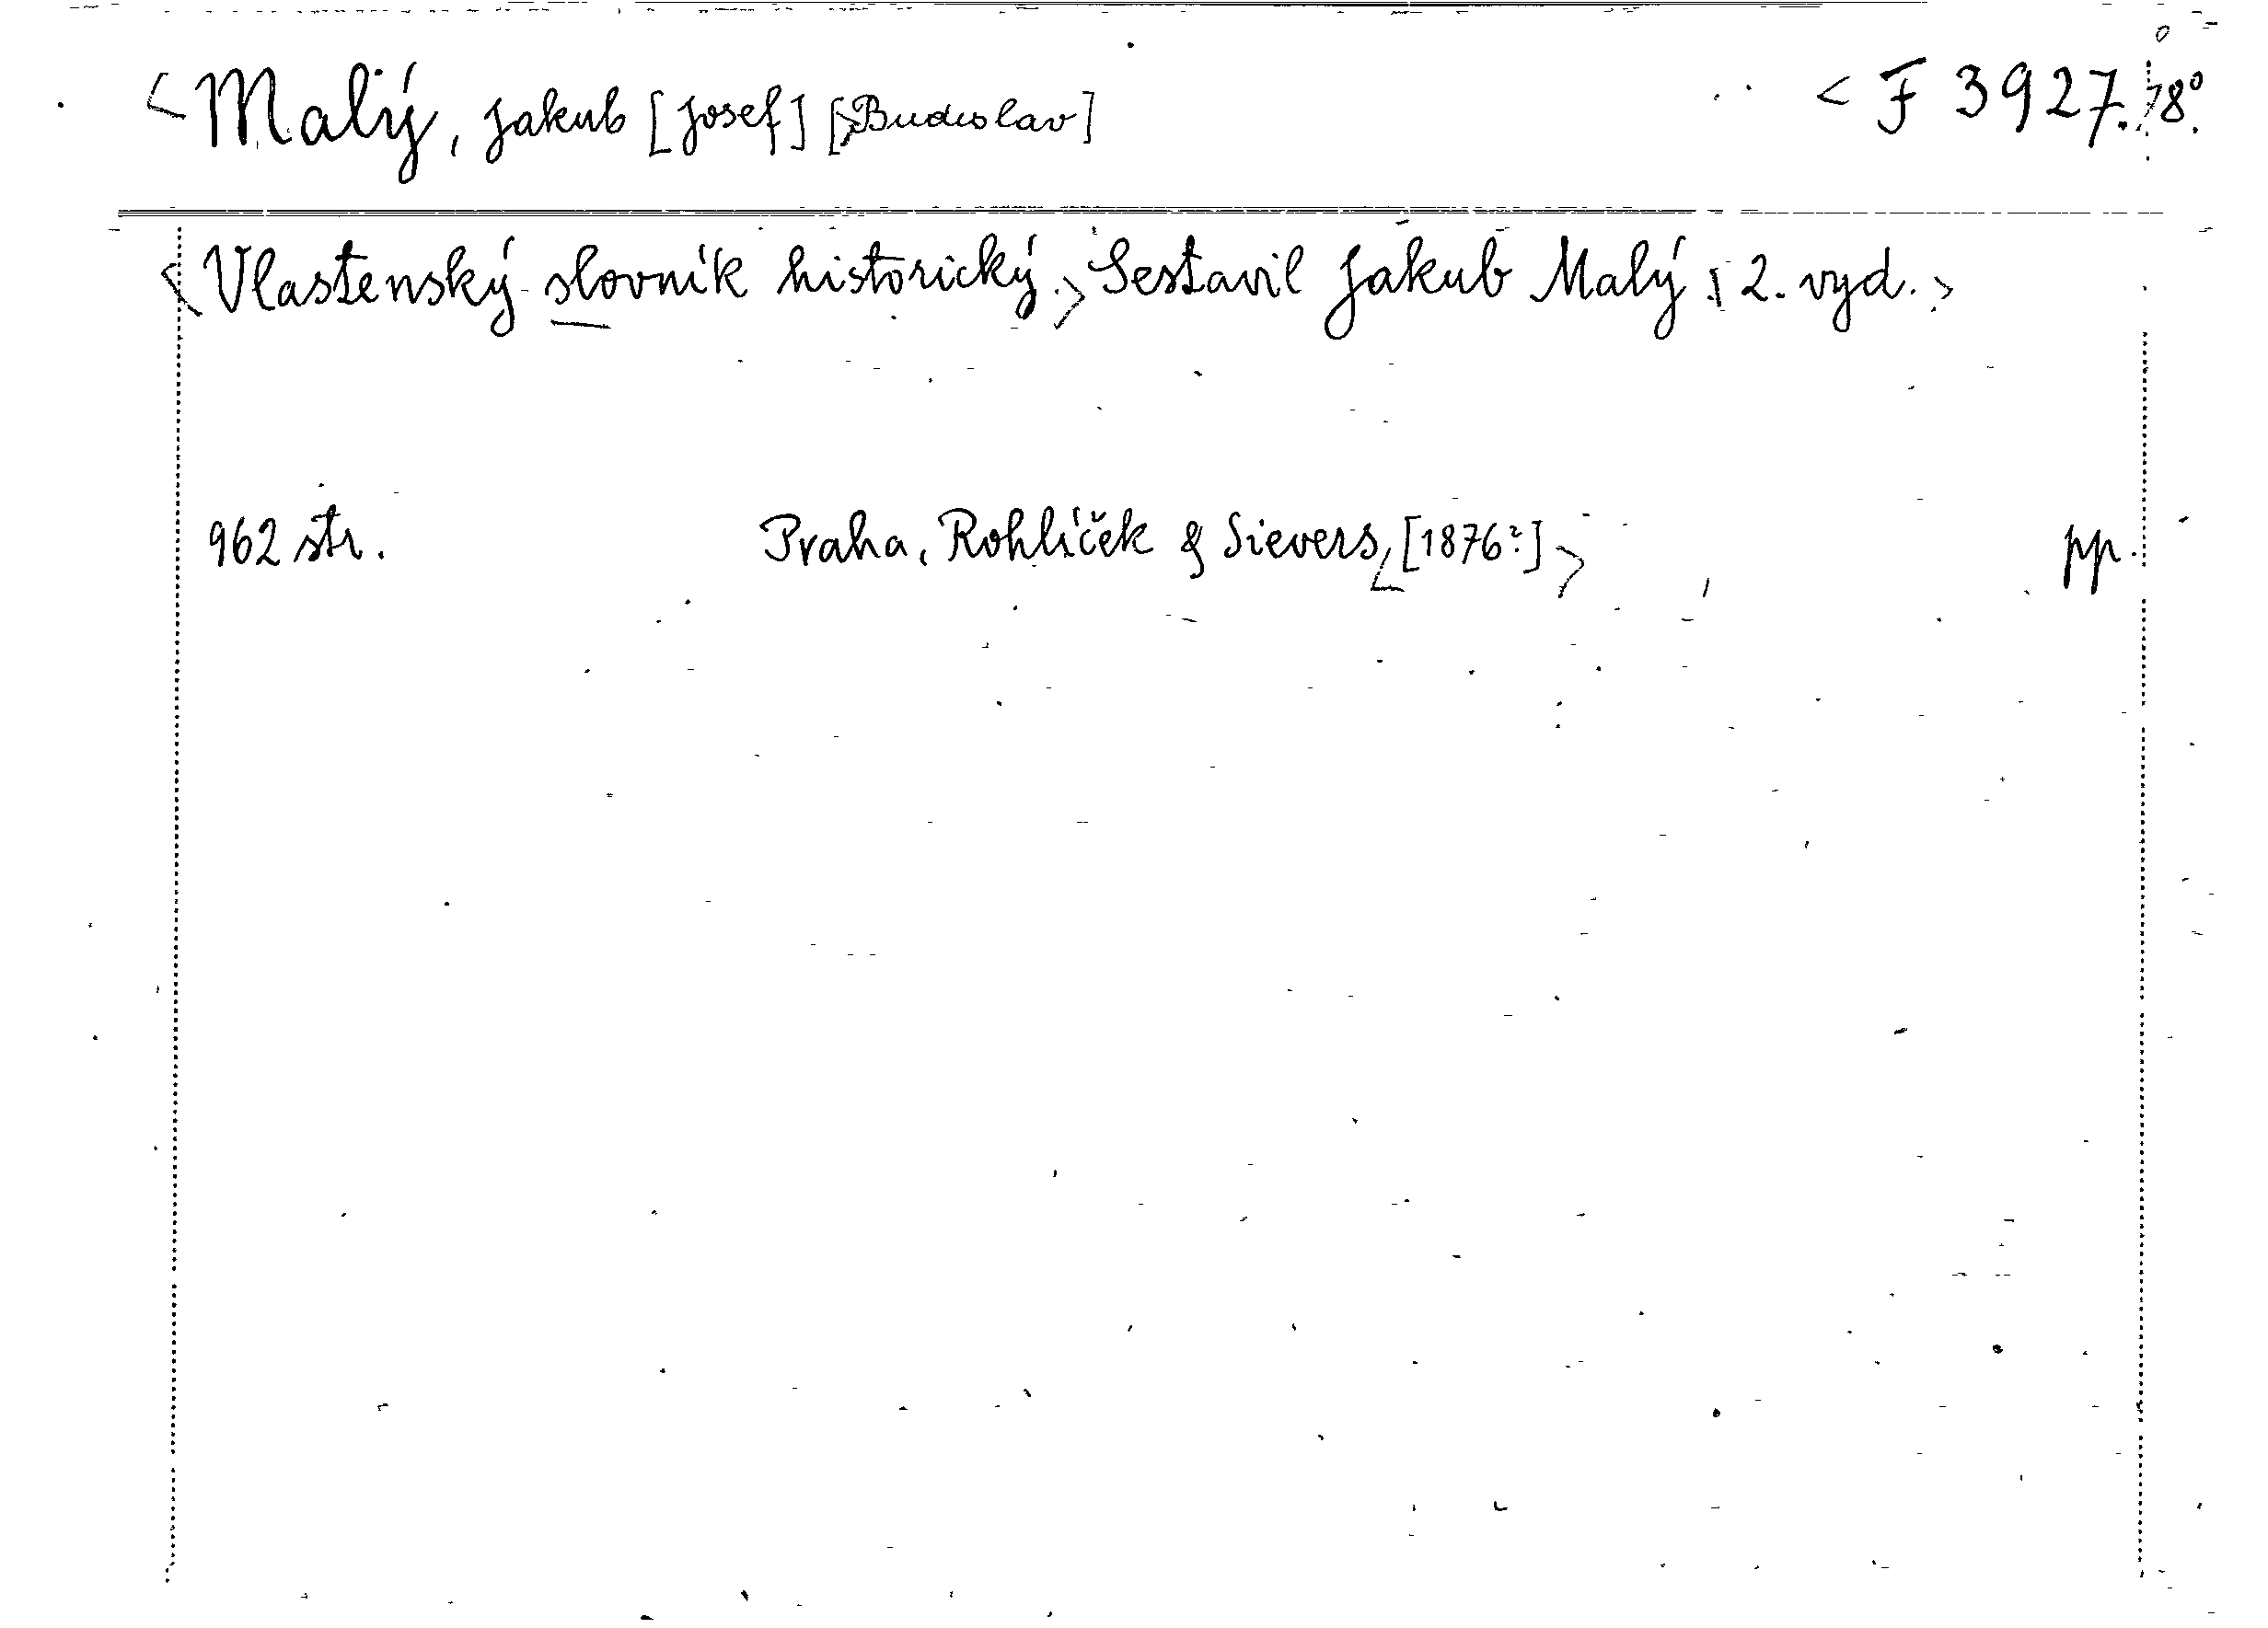 <Malý, Jakub [Josef] [>Budislav] <F 3927.>8°.
<Vlastenský slovník historický.> Sestavil Jakub Malý. 2. vyd.>
962 str. Praha, Rohlíček & Sievers, <[1876?]> pp.